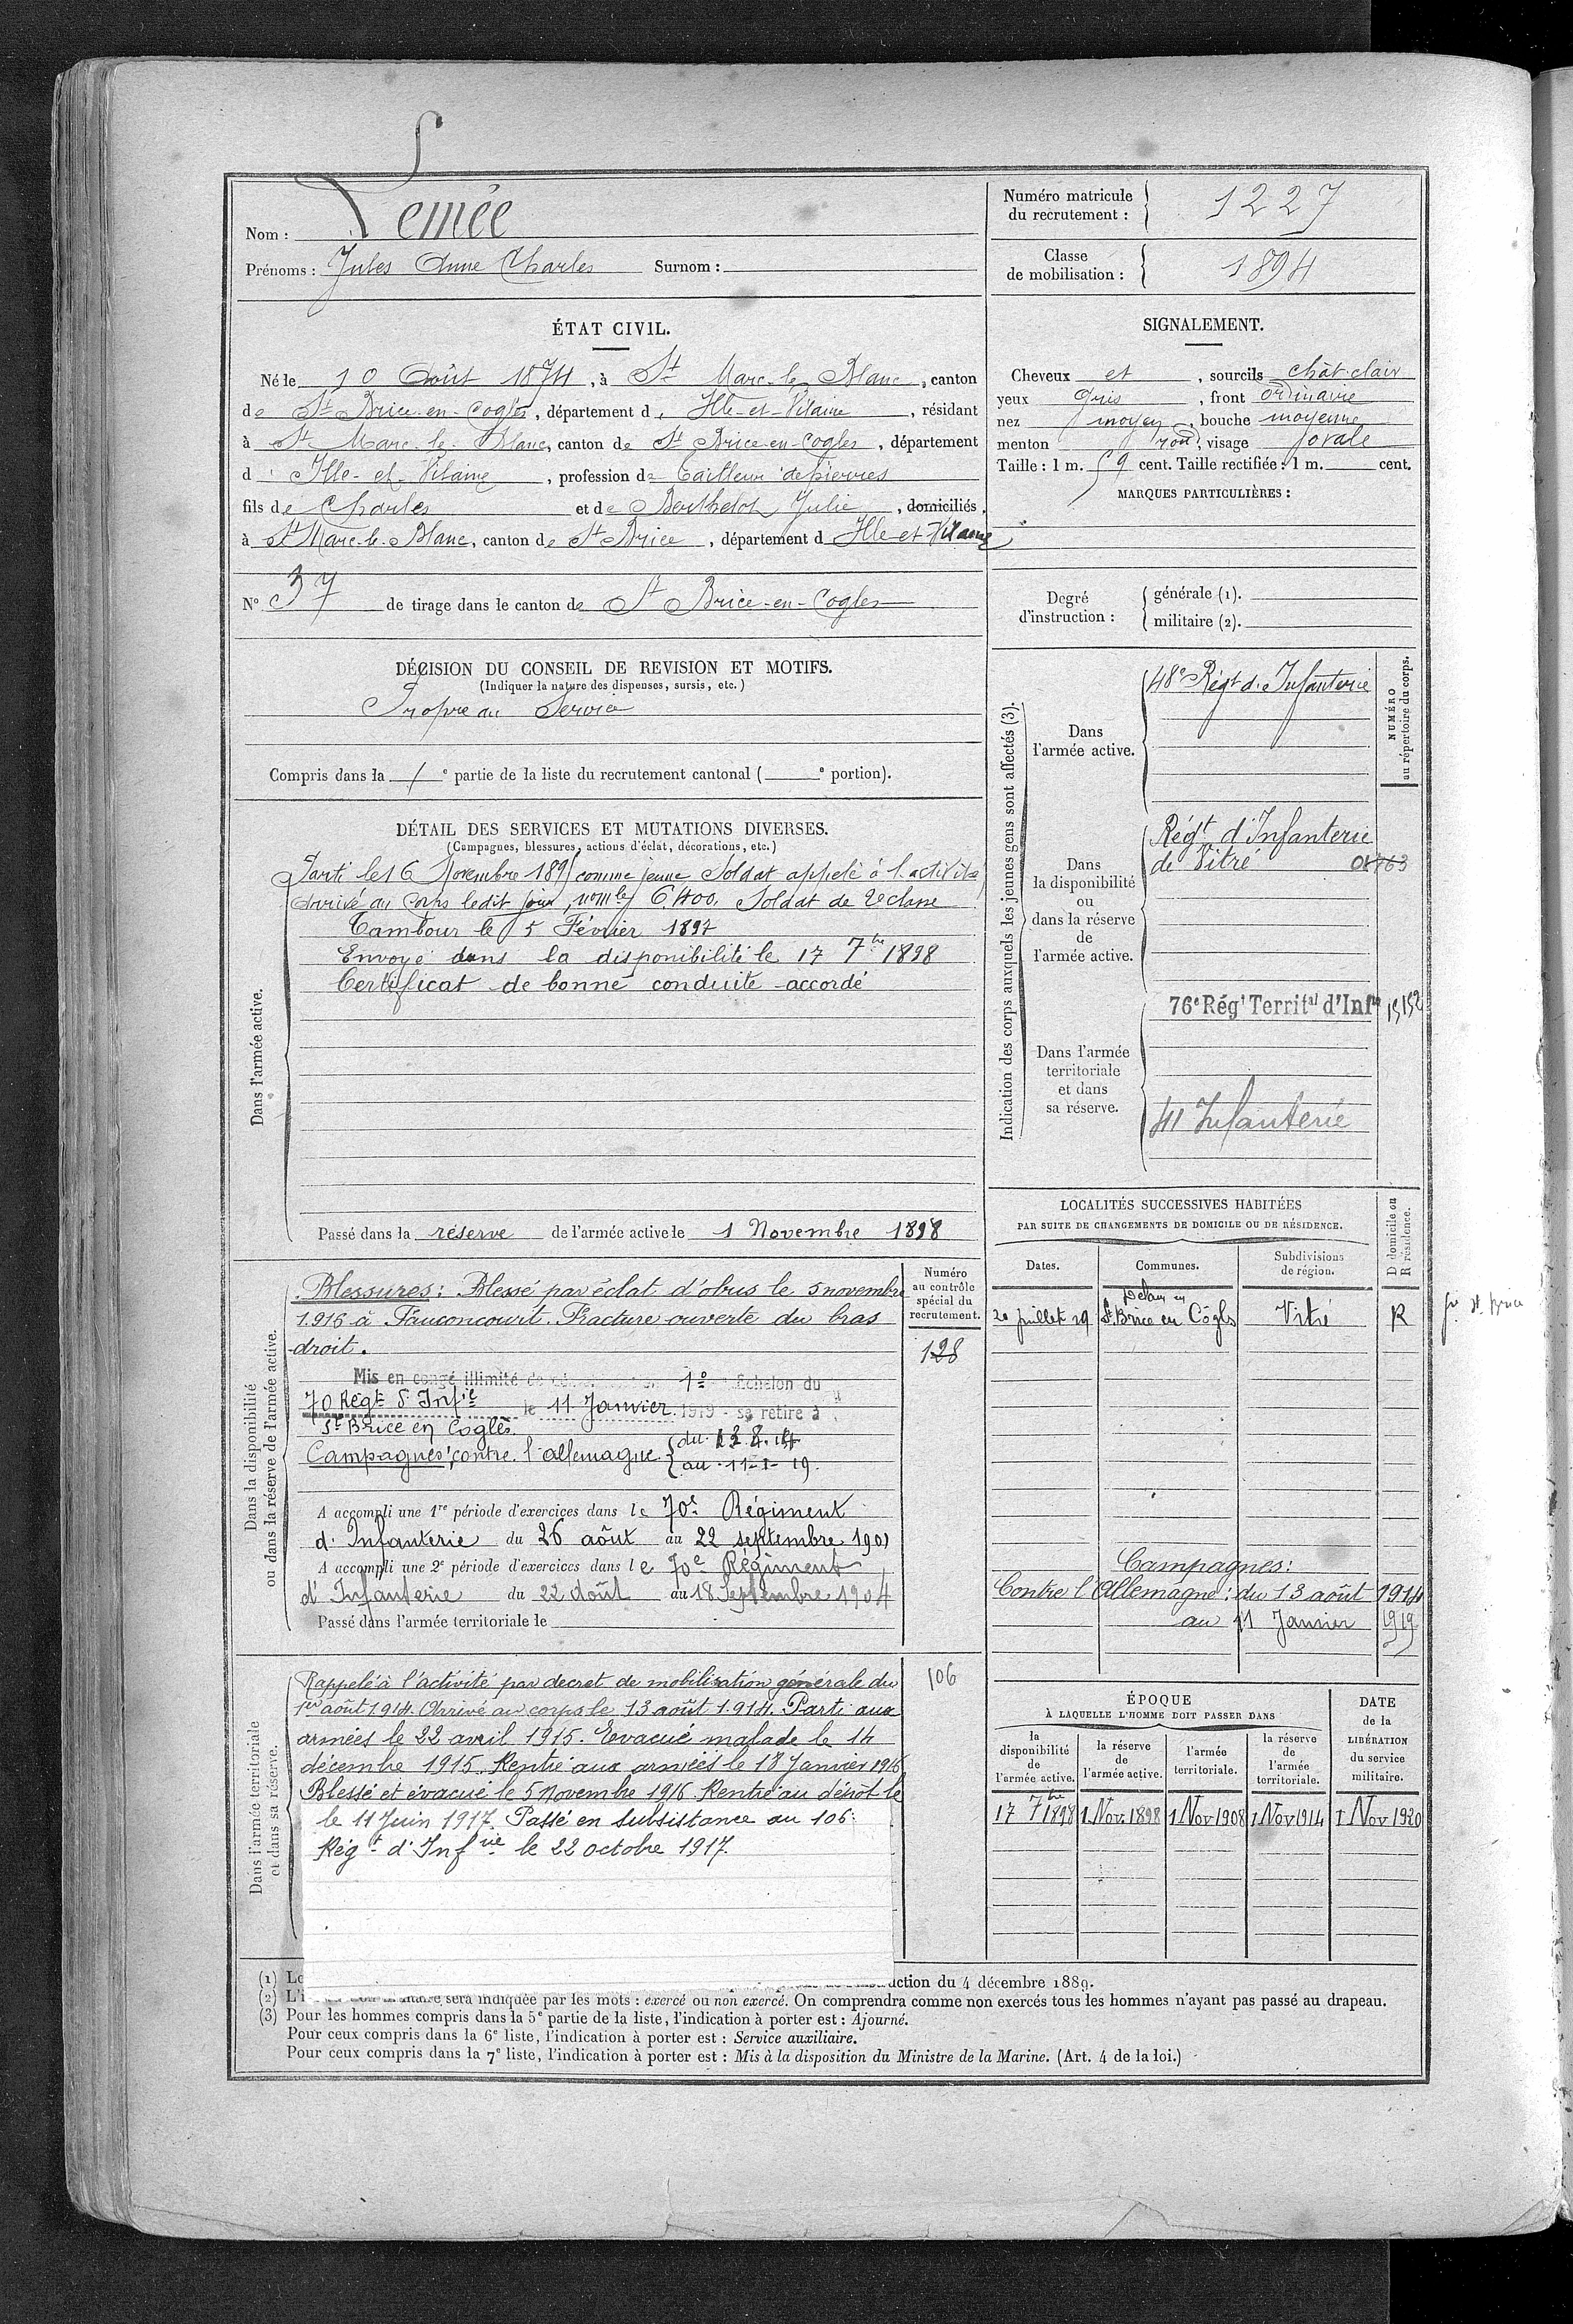 Nom : Lemée
Prénoms : Jules Anne Charles Surnom :
Numéro matricule du recrutement : 1227
Classe de mobilisation : 1894
ÉTAT CIVIL.
Né le 10 Août 1874, à St Marc-le-Blanc, canton
de St Brice-en-Cogles, département d'Ille-et-Vilaine, résidant
à St Marc-le-Blanc, canton de St Brice-en-Cogles, département
d'Ille-et-Vilaine, profession de tailleur de pierres
fils de Charles et de Berthelot Julie, domiciliés
à St Marc-le-Blanc, canton de St Brice, département d Ille-et-Vilaine
N° 37 de tirage dans le canton de St Brice-en-Cogles
SIGNALEMENT.
Cheveux et , sourcils chât-clair
yeux gris , front ordinaire
nez moyen , bouche moyenne
menton rond, visage ovale
Taille : 1 m. 59 cent. Taille rectifiée : 1 m. cent.
MARQUES PARTICULIÈRES :
Degré d'instruction :
générale (1).
militaire (2).
DÉCISION DU CONSEIL DE REVISION ET MOTIFS.
(Indiquer la nature des dispenses, sursis, etc.)
Propre au Service
Compris dans la 1e partie de la liste du recrutement cantonal ( e portion).
DÉTAIL DES SERVICES ET MUTATIONS DIVERSES.
(Campagnes, blessures, actions d'éclat, décorations, etc.)
Dans l'armée active.
Parti le 16 Novembre 1895 comme jeune Soldat appelé à l'activité
Arrivé au Corps ledit jour, nº mle 6.400, Soldat de 2e classe
Tambour le 5 Février 1897
Envoyé dans la disponibilité le 17 7bre 1898
Certificat de bonne conduite accordé
Passé dans la réserve de l'armée active le 1 Novembre 1898
Indication des corps auxquels les jeunes gens sont affectés (3).
NUMÉRO au répertoire du corps.
Dans l'armée active.
48e Régt d'Infanterie
Dans la disponibilité ou dans la réserve de l'armée active.
Régt d'Infanterie
de Vitré
Dans l'armée territoriale et dans sa réserve.
76e Régt Territal d'Infie 15152
41 Infanterie
Dans la disponibilité ou dans la réserve de l'armée active.
Numéro au contrôle spécial du recrutement.
128
Blessures : Blessé par éclat d'obus le 5 novembre
1.916 à Fauconcourt. Fracture ouverte du bras
droit.
Mis en congé illimité de 1º Echelon du
70 Régt d'Infie le 11 Janvier 1919 - se retire à
St Brice en Coglès
Campagnes contre l'allemagne { du 13.8.14
au 11-1-19.
A accompli une 1re période d'exercices dans le 70e Régiment
d'Infanterie du 26 août au 22 septembre 1901
A accompli une 2e période d'exercices dans le 70e Régiment
d'Infanterie du 22 Août au 18 Septembre 1904
Passé dans l'armée territoriale le
LOCALITÉS SUCCESSIVES HABITÉES
PAR SUITE DE CHANGEMENTS DE DOMICILE OU DE RÉSIDENCE.
Dates. Communes. Subdivisions de région. D domicile ou R résidence.
20 juillet 19 St Brice en Cogles Vitré R
Campagnes :
Contre l'Allemagne : du 13 août 1914
au 11 Janvier 1919
Dans l'armée territoriale et dans sa réserve.
106
Rappelé à l'activité par decret de mobilisation générale du
1er août 1914. Arrivé au corps le 13 août 1.914. Parti aux
armées le 22 avril 1915. Evacué malade le 14
décembre 1915. Rentré aux armées le 18 Janvier 1916
Blessé et évacué le 5 Novembre 1916. Rentré au dépôt le
le 11 Juin 1917. Passé en subsistance au 106e
Régt d'Infrie le 22 octobre 1917.
ÉPOQUE
À LAQUELLE L'HOMME DOIT PASSER DANS
la disponibilité de l'armée active.
la réserve de l'armée active.
l'armée territoriale.
la réserve de l'armée territoriale.
DATE de la LIBÉRATION du service militaire.
17 7bre 1898 1 Nov. 1898 1 Nov 1908 1 Nov 1914 1 Nov 1920
(1) uction du 4 décembre 1889.
(2) sera indiquée par les mots : exercé ou non exercé. On comprendra comme non exercés tous les hommes n'ayant pas passé au drapeau.
(3) Pour les hommes compris dans la 5e partie de la liste, l'indication à porter est : Ajourné.
Pour ceux compris dans la 6e liste, l'indication à porter est : Service auxiliaire.
Pour ceux compris dans la 7e liste, l'indication à porter est : Mis à la disposition du Ministre de la Marine. (Art. 4 de la loi.)